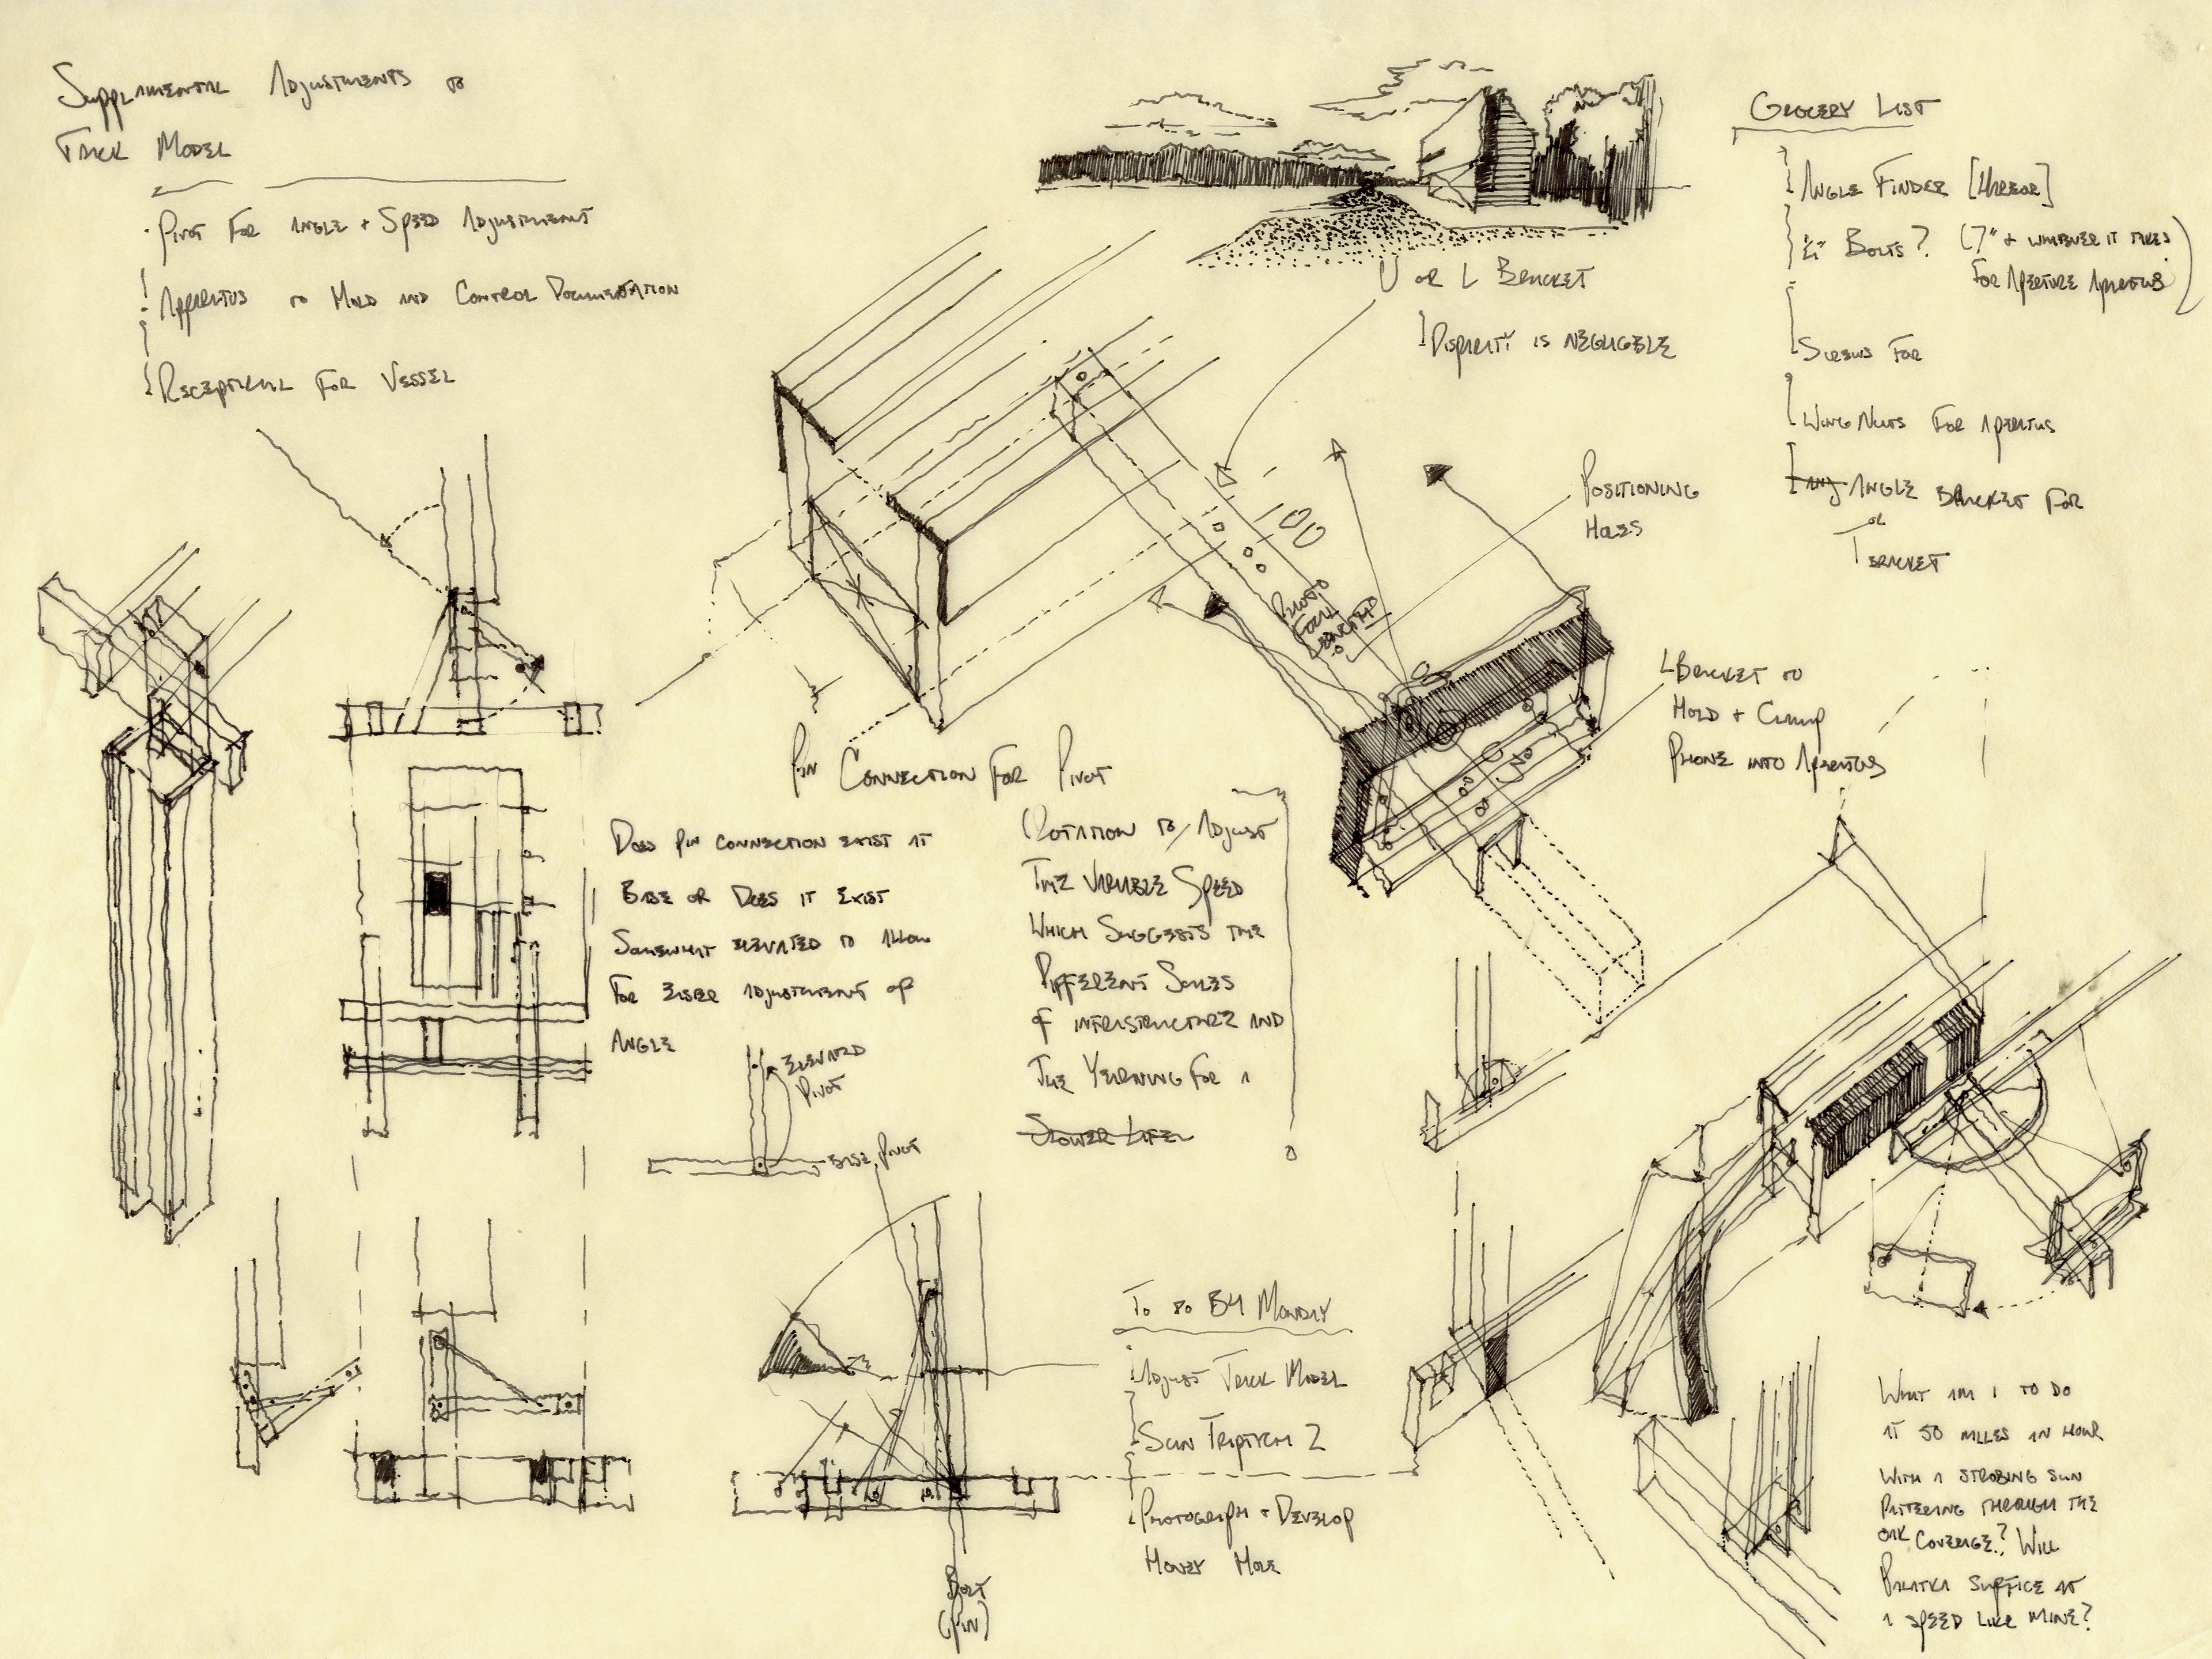 Supplamental Adjustments to
Track Model
Pivot for Angle + Speed Adjustment
Apparatus to Hold and Control Documentation
Receptical for Vessel
U or L Bracket
Disparity is negligible
Grocery List
Angle Finder [Harbor]
Bolts? (7" + whatever it takes
for Aperture Aparatus)
Screws for
Wing Nuts for Aparatus
Angle Bracket for
or
T Bracket
Positioning
Holes
Pivot
Focal
Length
L Bracket to
Hold + Clamp
Phone into Aparatus
Pin Connection for Pivot
Does pin connection exist at
Base or Does it exist
Somewhat elevated to allow
for easier adjustment of
Angle
Rotation to Adjust
the variable Speed
Which Suggests the
Different Scales
of infrastructure and
the Yearning for a
Slower Life
Elevated
Pivot
Base Pivot
To do by Monday
Adjust Track Model
Scan Triptych 2
Photograph + Develop
Honey Hole
Bolt
(Pin)
What am I to do
at 50 miles an hour
with a strobing sun
pattering through the
oak coverage? Will
Palatka suffice at
a speed like mine?